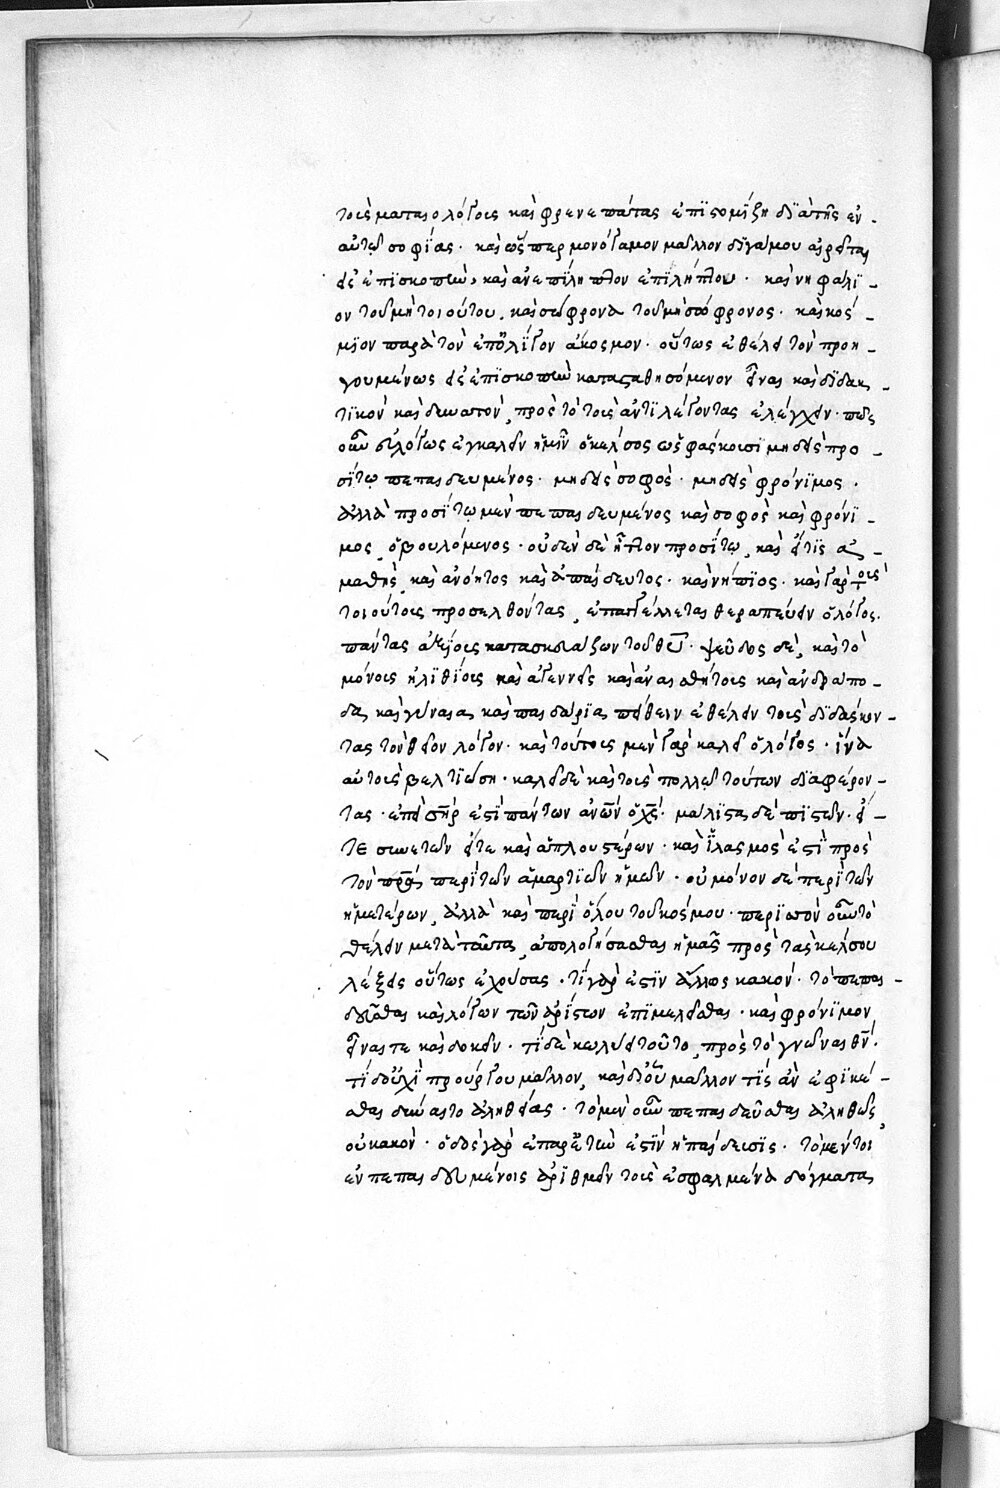 τοὺς ματαιολόγους καὶ φρεναπάτας ἐπιστομίζῃ διὰ τῆς ἐν
αὐτῷ σοφίας· καὶ ὥσπερ μονόγαμον μᾶλλον διγάμου αἱρεῖται
εἰς ἐπισκοπὴν, καὶ ἀνεπίληπτον ἐπιλήπτου· καὶ νηφάλι-
ον τοῦ μὴ τοιούτου, καὶ σώφρονα τοῦ μὴ σώφρονος· καὶ κόσ-
μιον παρὰ τὸν ἐπ' ὀλίγον ἄκοσμον· οὕτως ἐθέλει τὸν προη-
γουμένως εἰς ἐπισκοπὴν κατασταθησόμενον εἶναι καὶ διδακ-
τικὸν καὶ δυνατὸν, πρὸς τὸ τοὺς ἀντιλέγοντας ἐλέγχειν· πῶς
οὖν εὐλόγως ἐγκαλεῖ ἡμῖν ὁ κέλσος ὡς φάσκουσι μηδεὶς προ-
σίτω πεπαιδευμένος· μηδεὶς σοφός· μηδεὶς φρόνιμος·
ἀλλὰ προσίτω μὲν πεπαιδευμένος καὶ σοφὸς καὶ φρόνι-
μος, ὁ βουλόμενος· οὐδὲν δὲ ἧττον προσίτω, καὶ εἴ τις ἀ-
μαθὴς, καὶ ἀνόητος καὶ ἀπαίδευτος· καὶ νήπιος· καὶ γὰρ τοὺς
τοιούτους προσελθόντας, ἐπαγγέλλεται θεραπεύειν ὁ λόγος·
πάντας ἀξίους κατασκευάζων τοῦ θυ· ψεῦδος δὲ, καὶ τὸ
μόνους ἠλιθίους καὶ ἀγεννεῖς καὶ ἀναισθήτους καὶ ἀνδράπο-
δα, καὶ γύναια καὶ παιδάρια, πείθειν ἐθέλειν τοὺς διδάσκον-
τας τὸν θεῖον λόγον· καὶ τούτους μὲν γὰρ καλεῖ ὁ λόγος· ἵνα
αὐτοὺς βελτιώσῃ· καλεῖ δὲ καὶ τοὺς πολλῷ τούτων διαφέρον-
τας· ἐπεὶ σηρ ἐστὶ πάντων ἀνων ὁ χς· μάλιστα δὲ πιστῶν· εἴ-
τε συνετῶν εἴτε καὶ ἁπλουστέρων· καὶ ἱλασμός ἐστι πρὸς
τὸν πρα περὶ τῶν ἁμαρτιῶν ἡμῶν· οὐ μόνον δὲ περὶ τῶν
ἡμετέρων, ἀλλὰ καὶ περὶ ὅλου τοῦ κόσμου· περισσὸν οὖν τὸ
θέλειν μετὰ ταῦτα, ἀπολογήσασθαι ἡμᾶς πρὸς τὰς κέλσου
λέξεις οὕτως ἐχούσας· τί γάρ ἐστιν ἄλλως κακὸν· τὸ πεπαι-
δεῦσθαι καὶ λόγων τῶν ἀρίστων ἐπιμελεῖσθαι· καὶ φρόνιμον
εἶναί τε καὶ δοκεῖν· τί δὲ κωλύει τοῦτο, πρὸς τὸ γνῶναι θν·
τί δ' οὐχὶ προὔργου μᾶλλον, καὶ δι' οὗ μᾶλλον τὶς ἂν ἐφικέ-
σθαι δύναιτο ἀληθείας· τὸ μὲν οὖν πεπαιδεῦσθαι ἀληθῶς,
οὐ κακόν· ὁδὸς γὰρ ἐπ' ἀρετήν ἐστιν ἡ παίδευσις· τὸ μέντοι
ἐν πεπαιδευμένοις ἀριθμεῖν τοὺς ἐσφαλμένα δόγματα